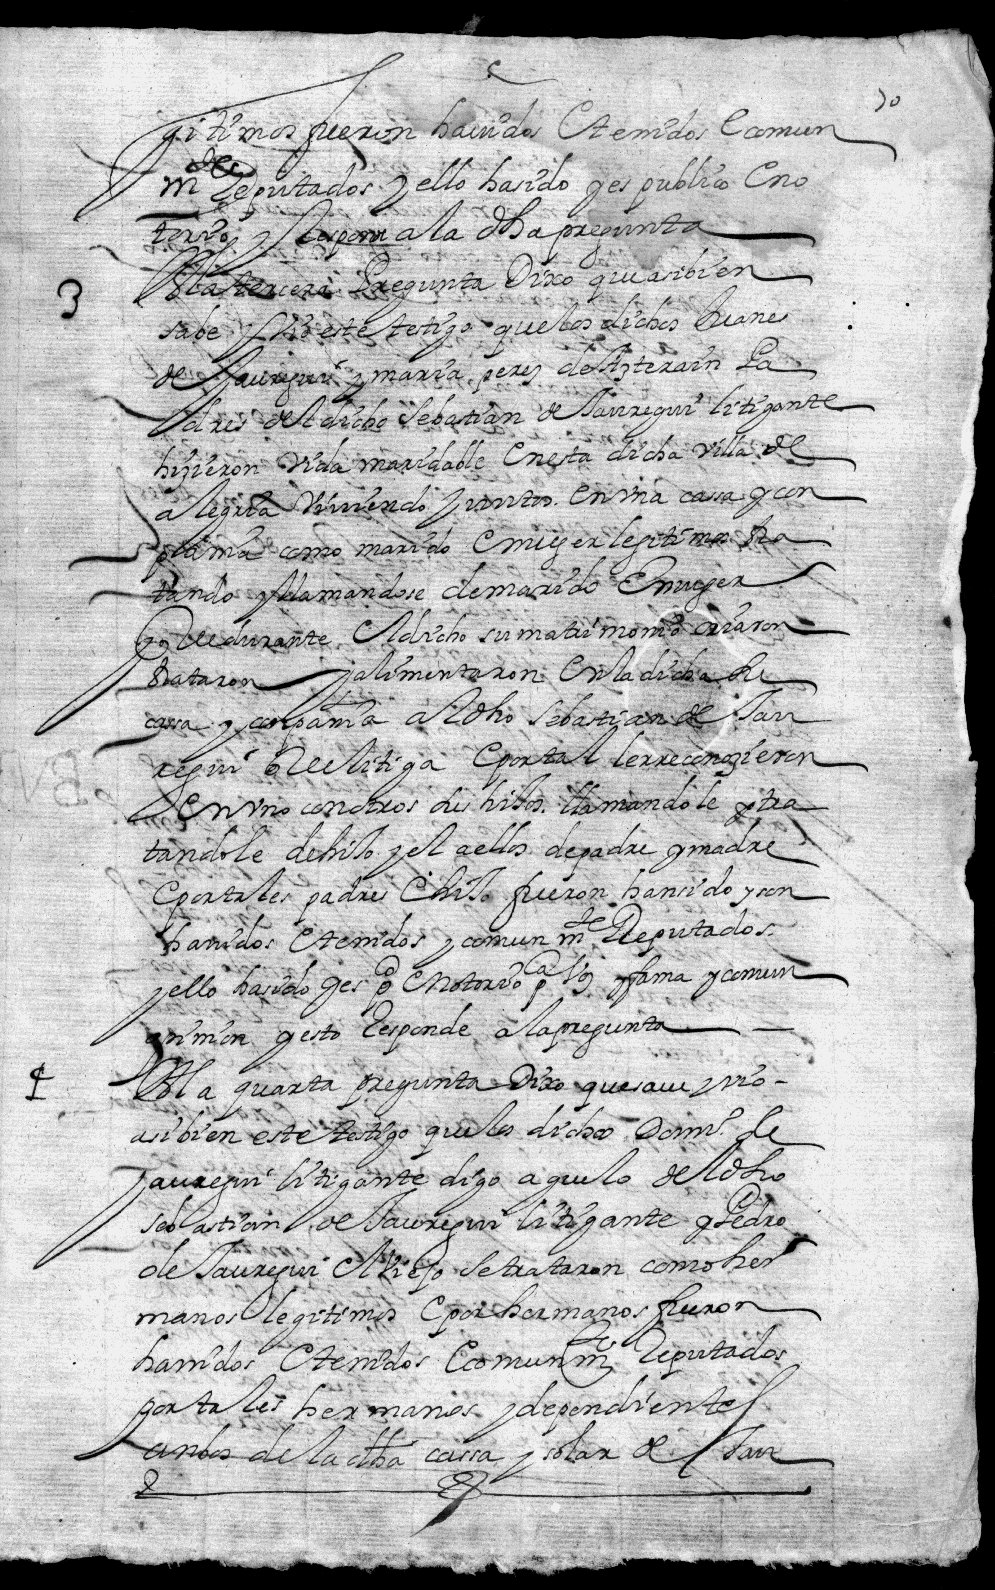 70
gitimos fueron havidos E tenidos E comun
m.te Reputados y ello ha sido y es publico E no
torio, y Respon a la dha pregunta
3 A la tercera Pregunta Dixo que asi bien
save y vio este testigo que los dichos Juanes
de Jauregui y maria peres de Azterain Pa
dres del dicho Sebastian de Jauregui litigante
hizieron vida maridable En esta dicha villa de
alegria viviendo juntos. En una cassa y con
pania como marido E muger legitimos tra
tando y llamandose de marido E muger
y que durante El dicho su matrimonio criaron
trataron y alimentaron En la dicha
cassa y conpania al dho Sebastian de Jau
regui que litiga E por tal le rreconozieron
En uno con otros sus hijos. llamandole y tra
tandole de hijo y el a ellos de padre y madre
E por tales padres E hijo fueron han sido y son
havidos E tenidos y comun m.te Reputados.
y ello ha sido y es p.co E notorio p.ca voz y fama y comun
opinion y esto Responde a la pregunta
4 A la quarta pregunta Dixo que save y vio
asi bien este testigo que los dichos Domi.o de
Jauregui litigante digo aguelo del dho
sebastian de Jauregui litigante y Pedro
de Jauregui El Viejo se trataron como her
manos legitimos E por hermanos fueron
havidos E tenidos E comun m.te Reputados
por tales hermanos y dependientes
anbos de la dha cassa y solar de Jau